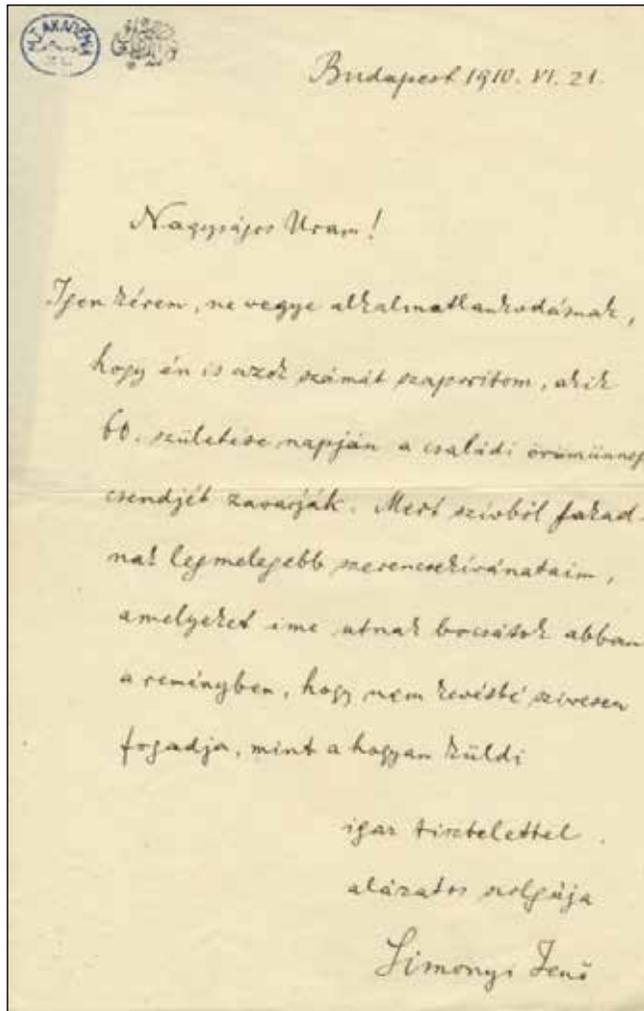 M. T. AKADÉMIA
Budapest 1910. VI. 21.
Nagyságos Uram!
Igen kérem, ne vegye alkalmatlankodásnak,
hogy én is azok számát szaporítom, akik
60. születése napján a családi örömünnep
csendjét zavarják. Mert szívből fakad-
nak legmelegebb szerencsekívánataim,
amelyeket ime utnak bocsátok abban
a reményben, hogy nem kevésbé szivesen
fogadja, mint a hogyan küldi
igaz tisztelettel
alázatos szolgája
Simonyi Jenő